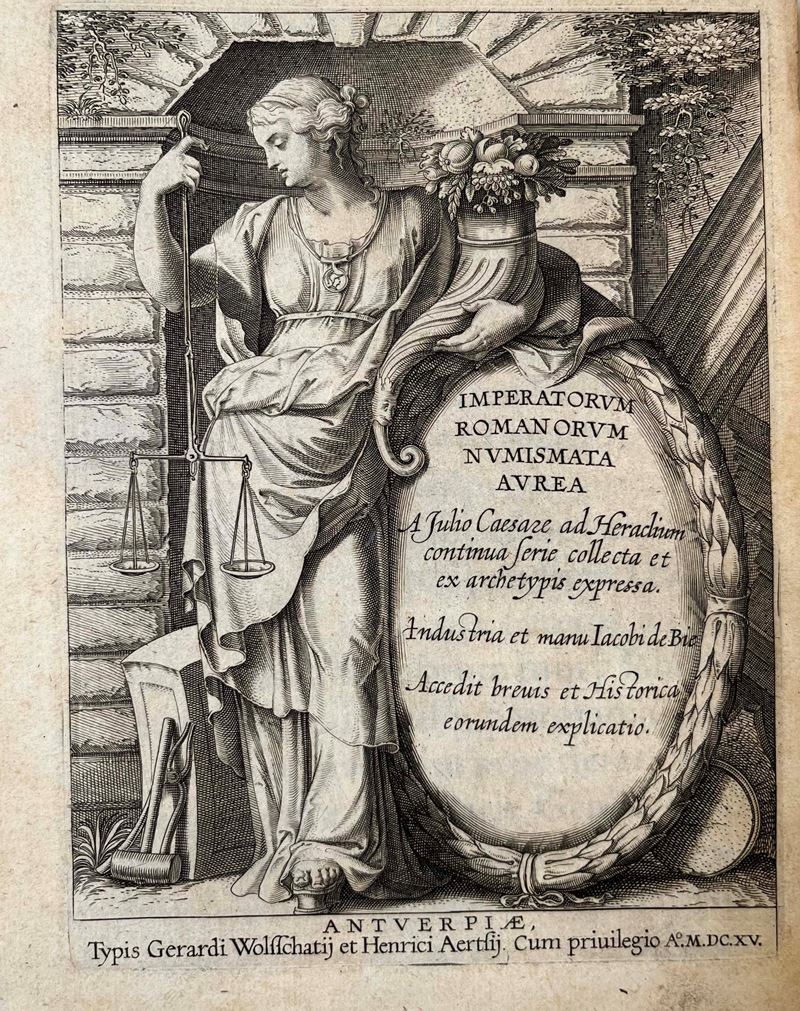 IMPERATORVM
ROMANORVM
NVMISMATA
AVREA
A Julio Caesare ad Heraclium
continua serie collecta et
ex archetypis expressa.
Industria et manu Iacobi de Bie
Accedit breuis et Historica
eorundem explicatio.
ANTVERPIÆ,
Typis Gerardi Wolsschatij et Henrici Aertsij. Cum priuilegio Aº. M.DC.XV.